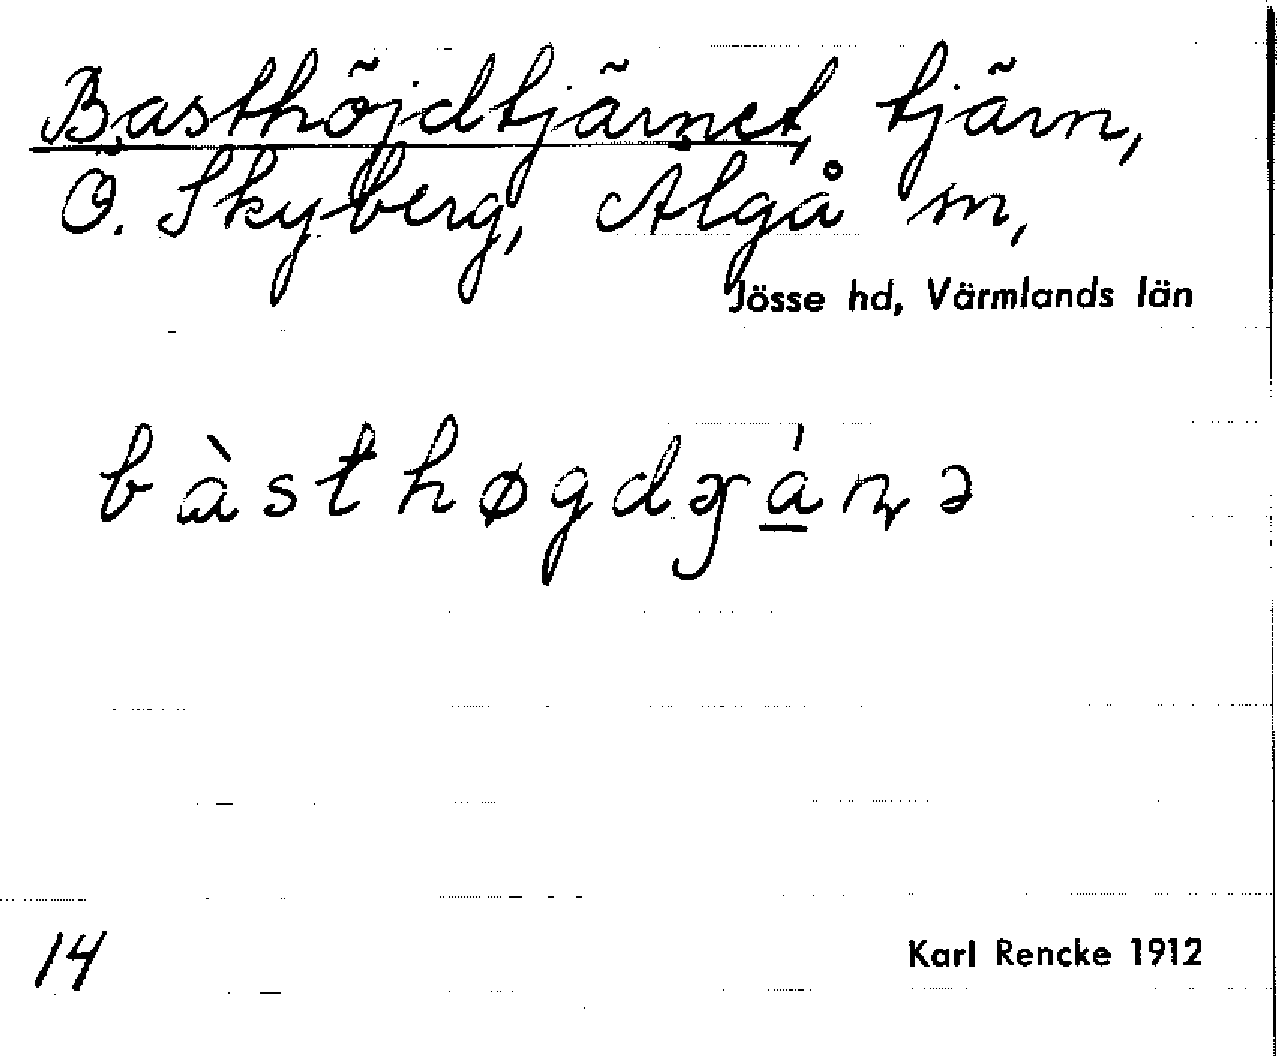 Basthöjdtjärnet, tjärn,
Ö. Skyberg, Älgå sn,
Jösse hd, Värmlands län
bàsthøgdɟá̱ɳə
14
Karl Rencke 1912